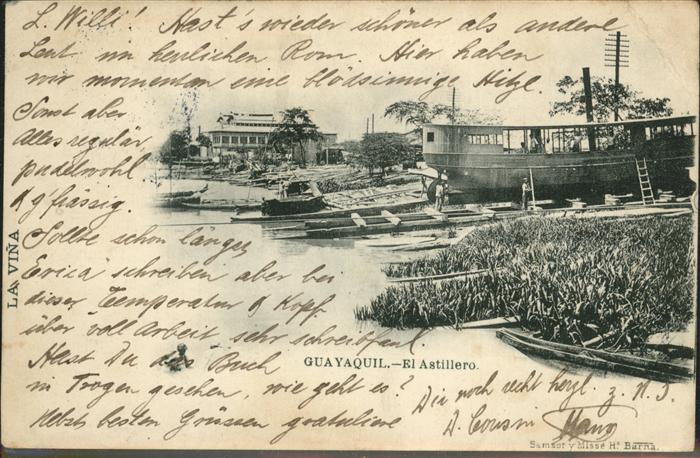 L. Willi! Hast's wieder schöner als andere
Leut im herrlichen Rom. Hier haben
wir momentan eine blödsinnige Hitze.
Sonst aber
alles regulär,
pudelwohl
& g'frässig.
Sollte schon länger
Erica schreiben aber bei
dieser Temperatur & Kopf
über voll Arbeit sehr schreibfaul.
Hast Du das Buch
in Trogen gesehen, wie geht es?
Nebst besten Grüssen gratuliere
Dir noch recht herzl. z. N. J.
D. Cousin Hans
LA VIÑA
GUAYAQUIL.—El Astillero.
Samsot y Missé Hs. Barna.